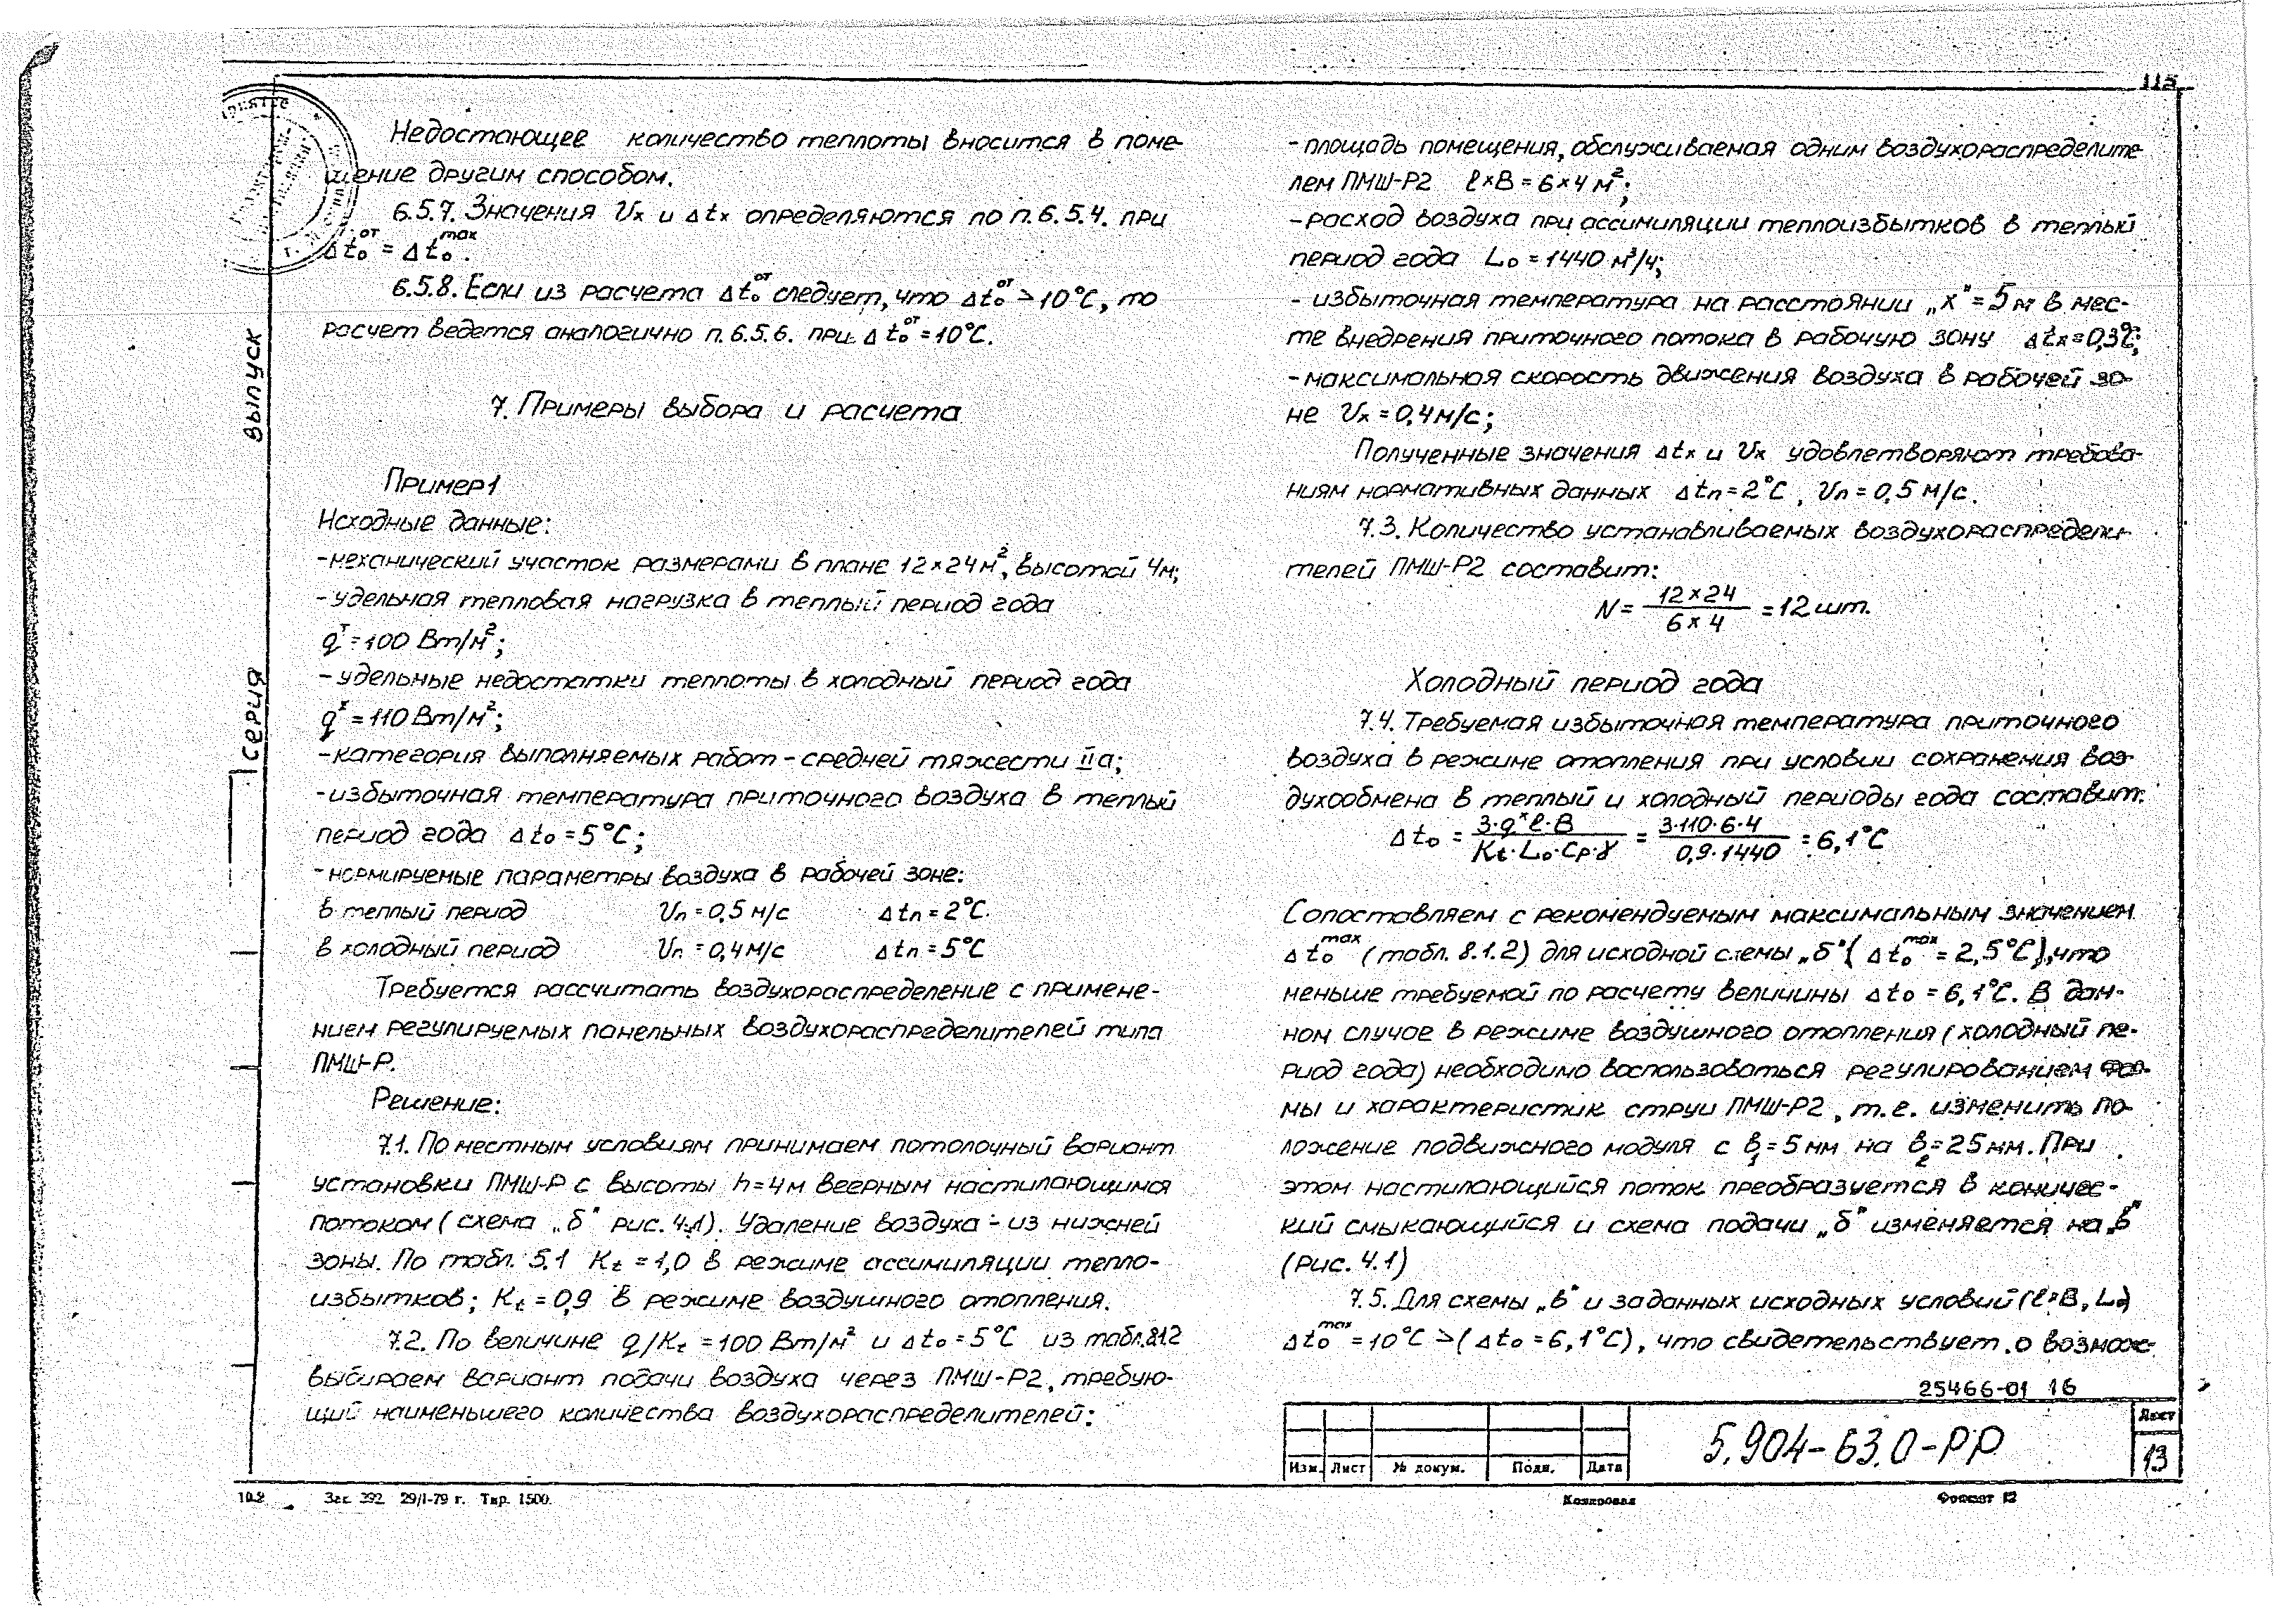 115
Недостающее количество теплоты вносится в поме-
щение другим способом.
6.5.7. Значения Vx и Δtx определяются по п. 6.5.4. при
Δt₀ᵒᵀ = Δt₀ᵐᵃˣ.
6.5.8. Если из расчета Δt₀ᵒᵀ следует, что Δt₀ᵒᵀ > 10°С, то
расчет ведется аналогично п. 6.5.6. при Δt₀ᵒᵀ = 10°С.
7. Примеры выбора и расчета
Пример 1
Исходные данные:
- механический участок размерами в плане 12×24 м², высотой 4м;
- удельная тепловая нагрузка в теплый период года
qᵀ = 100 Вт/м²;
- удельные недостатки теплоты в холодный период года
qˣ = 110 Вт/м²;
- категория выполняемых работ - средней тяжести IIа;
- избыточная температура приточного воздуха в теплый
период года Δt₀ = 5°С;
- нормируемые параметры воздуха в рабочей зоне:
в теплый период Vп = 0,5 м/с Δtп = 2°С.
в холодный период Vп = 0,4 м/с Δtп = 5°С
Требуется рассчитать воздухораспределение с примене-
нием регулируемых панельных воздухораспределителей типа
ПМШ-Р.
Решение:
7.1. По местным условиям принимаем потолочный вариант
установки ПМШ-Р с высоты h=4м веерным настилающимся
потоком (схема „б" рис. 4.1). Удаление воздуха - из нижней
зоны. По табл. 5.1 Kt = 1,0 в режиме ассимиляции тепло-
избытков; Kt = 0,9 в режиме воздушного отопления.
7.2. По величине q/Kt = 100 Вт/м² и Δt₀ = 5°С из табл. 8.1.2
выбираем вариант подачи воздуха через ПМШ-Р2, требую-
щий наименьшего количества воздухораспределителей:
- площадь помещения, обслуживаемая одним воздухораспределите-
лем ПМШ-Р2 ℓ×В = 6×4 м²;
- расход воздуха при ассимиляции теплоизбытков в теплый
период года L₀ = 1440 м³/ч;
- избыточная температура на расстоянии „х" = 5 м в мес-
те внедрения приточного потока в рабочую зону Δtx = 0,3°С;
- максимальная скорость движения воздуха в рабочей зо-
не Vx = 0,4 м/с;
Полученные значения Δtx и Vx удовлетворяют требова-
ниям нормативных данных Δtп = 2°С, Vп = 0,5 м/с.
7.3. Количество устанавливаемых воздухораспредели-
телей ПМШ-Р2 составит:
N = 12×24 / 6×4 = 12 шт.
Холодный период года
7.4. Требуемая избыточная температура приточного
воздуха в режиме отопления при условии сохранения воз-
духообмена в теплый и холодный периоды года составит:
Δt₀ = 3·qˣ·ℓ·В / Kt·L₀·Cp·γ = 3·110·6·4 / 0,9·1440 = 6,1°С
Сопоставляем с рекомендуемым максимальным значением
Δt₀ᵐᵃˣ (табл. 8.1.2) для исходной схемы „б" (Δt₀ᵐᵃˣ = 2,5°С), что
меньше требуемой по расчету величины Δt₀ = 6,1°С. В дан-
ном случае в режиме воздушного отопления (холодный пе-
риод года) необходимо воспользоваться регулированием фор-
мы и характеристик струи ПМШ-Р2, т.е. изменить по-
ложение подвижного модуля с в₁ = 5 мм на в₂ = 25 мм. При
этом настилающийся поток преобразуется в коничес-
кий смыкающийся и схема подачи „б" изменяется на „в"
(рис. 4.1)
7.5. Для схемы „в" и заданных исходных условий (ℓ×В, L₀)
Δt₀ᵐᵃˣ = 10°С > (Δt₀ = 6,1°С), что свидетельствует о возмож-
25466-01 16
Изм. Лист № докум. Подп. Дата
5.904-63.0-РР
Лист
13
выпуск
серия
10.2 Зак. 392 29/I-79 г. Тир. 1500.
Копировал
Формат 12